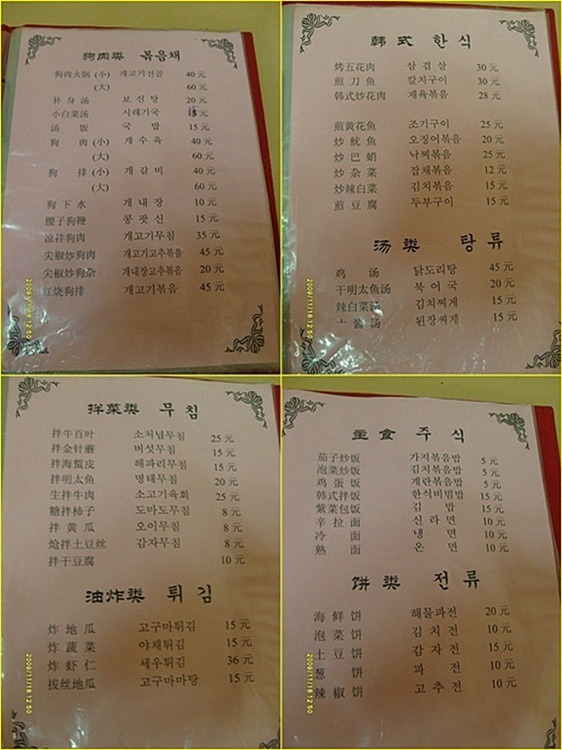 狗肉类 볶음채
狗肉火锅 (小) 개고기전골 40 元
(大) 60 元
补身汤 보신탕 20 元
小白菜汤 시래기국 15 元
汤饭 국밥 15 元
狗肉 (小) 개수육 40 元
(大) 60 元
狗排 (小) 개갈비 40 元
(大) 60 元
狗下水 개내장 10 元
腰子狗鞭 콩팟신 15 元
凉拌狗肉 개고기무침 35 元
尖椒炒狗肉 개고기고추볶음 45 元
尖椒炒狗杂 개내장고추볶음 20 元
红烧狗排 개고기볶음 45 元
2009/11/18 12:50
韩式 한식
烤五花肉 삼겹살 30 元
煎刀鱼 칼치구이 30 元
韩式炒花肉 재육볶음 28 元
煎黄花鱼 조기구이 25 元
炒鱿鱼 오징어볶음 20 元
炒巴蛸 낙찌볶음 25 元
炒杂菜 잡채볶음 12 元
炒辣白菜 김치볶음 15 元
煎豆腐 두부구이 15 元
汤类 탕류
鸡汤 닭도리탕 45 元
干明太鱼汤 북어국 20 元
辣白菜汤 김치찌게 15 元
酱汤 된장찌게 15 元
2009/11/18 12:50
拌菜类 무침
拌牛百叶 소처녑무침 25 元
拌金针蘑 버섯무침 15 元
拌海蜇皮 해파리무침 15 元
拌明太鱼 명태무침 20 元
生拌牛肉 소고기육회 25 元
糖拌柿子 도마도무침 8 元
拌黄瓜 오이무침 8 元
炝拌土豆丝 감자무침 8 元
拌干豆腐 10 元
油炸类 튀김
炸地瓜 고구마튀김 15 元
炸蔬菜 야채튀김 15 元
炸虾仁 세우튀김 36 元
拔丝地瓜 고구마마탕 15 元
2009/11/18 12:50
主食 주식
茄子炒饭 가지볶음밥 5 元
泡菜炒饭 김치볶음밥 5 元
鸡蛋饭 계란볶음밥 5 元
韩式拌饭 한식비빔밥 15 元
紫菜包饭 김밥 15 元
辛拉面 신라면 10 元
冷面 냉면 10 元
熟面 온면 10 元
饼类 전류
海鲜饼 해물파전 20 元
泡菜饼 김치전 10 元
土豆饼 감자전 15 元
葱饼 파전 10 元
辣椒饼 고추전 10 元
2009/11/18 12:50